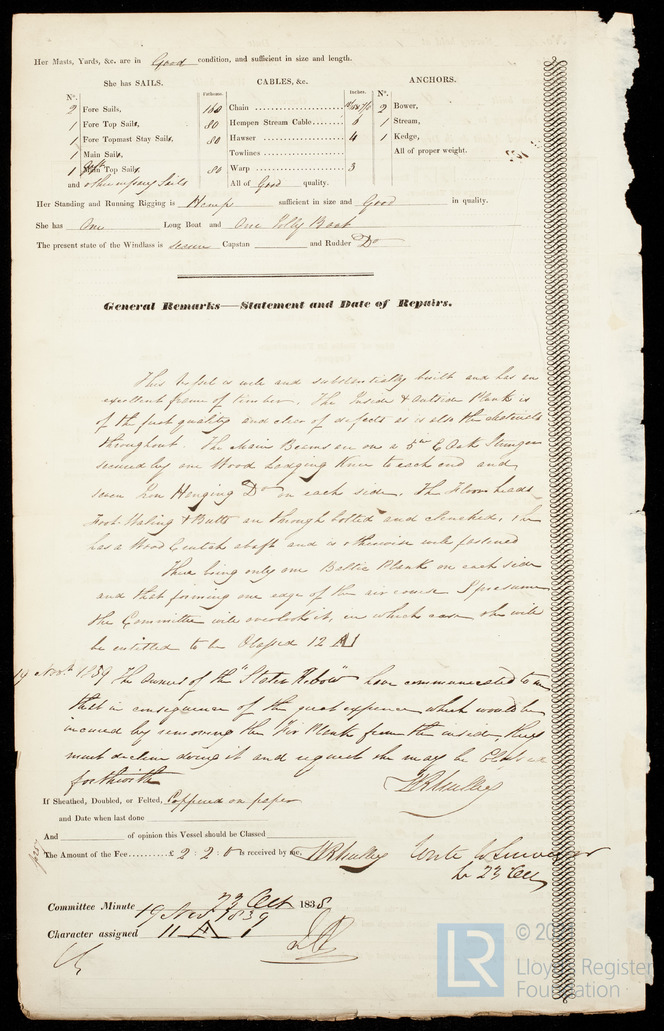 Her Masts, Yards, &c. are in Good condition, and sufficient in size and length.
She has SAILS. CABLES, &c. ANCHORS.
N°. Fathoms. Inches. N°.
2 Fore Sails, 160 Chain 2 Bower,
1 Fore Top Sails, 80 Hempen Stream Cable 6 1 Stream,
1 Fore Topmast Stay Sails, 80 Hawser 4 1 Kedge,
1 Main Sails, Towlines All of proper weight.
1 Main Top Sails 80 Warp 3
and other necessary Sails All of Good quality.
Her Standing and Running Rigging is Hemp sufficient in size and Good in quality.
She has One Long Boat and One Jolly Boat
The present state of the Windlass is secure Capstan and Rudder Do
General Remarks—Statement and Date of Repairs.
This Vessel is well and substantially built and has an
excellent frame of timber. The Inside & Outside Plank is
of the first quality and clear of defects as is also the materials
throughout. The Main Beams are on a 5in E Oak Stringer
secured by one Wood Lodging Knee to each end and
seven Iron Hanging Do on each side. The Floorheads
Foot-Waling & Butts are through bolted and clenched, She
has a Wood Crutch abaft and is otherwise well fastened
There being only one Baltic Plank on each side
and that forming one edge of the air course I presume
the Committee will overlook it, in which case she will
be entitled to be Classed 12 A1
19 Novr. 1839 The Owners of the "Slater Rebow" have communicated to me
that in consequence of the great expence which would be
incurred by removing the Fir Plank from the inside, they
must decline doing it and request she may be Classed
forthwith
If Sheathed, Doubled, or Felted, Coppered on paper
and Date when last done
And of opinion this Vessel should be Classed
The Amount of the Fee £ 2 : 2 : 0 is received by me,
Write to Surveyor
Lr 23 Oct
Committee Minute 23 Oct 1838
19 Nov 1839
Character assigned 11 A 1
LR
© 20
Lloyd's Register
Foundation